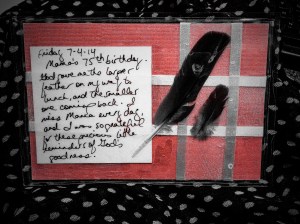 Friday 7-4-14
Mama's 75th birthday.
God gave me the larger
feather on my way to
lunch, and the smaller
one coming back. I
miss Mama every day,
and I was so grateful
for these precious little
reminders of God's
goodness.